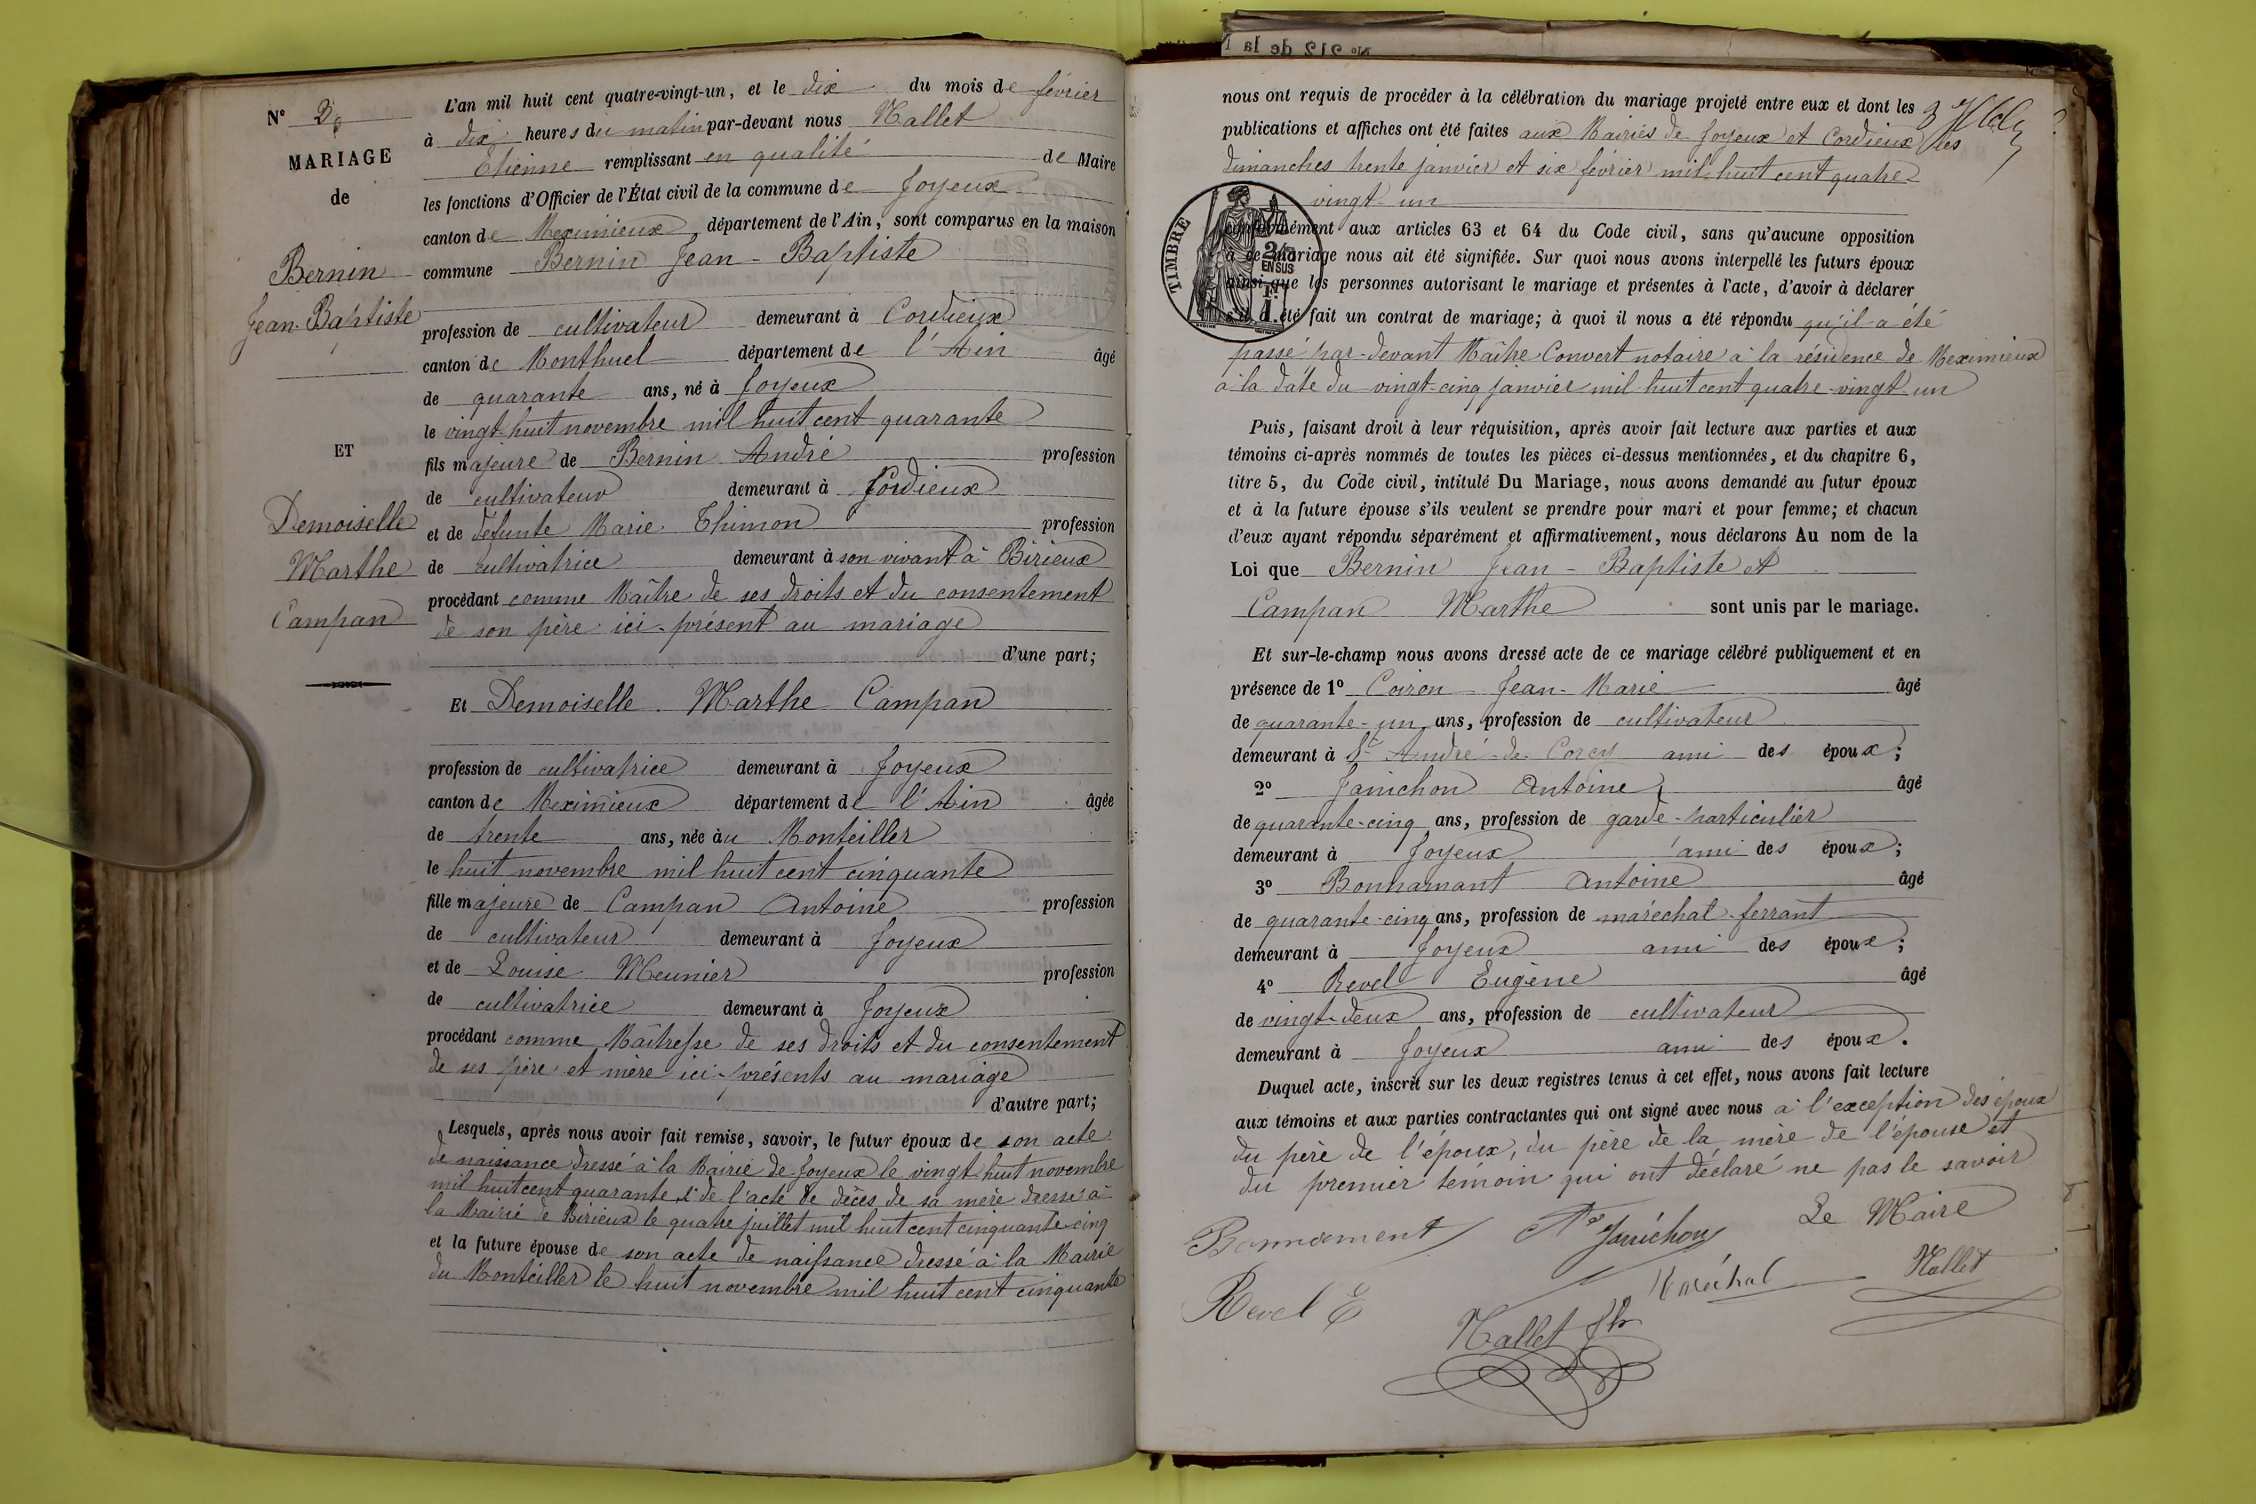 N° 2.
MARIAGE
de
Bernin
Jean-Baptiste
ET
Demoiselle
Marthe
Campan
L'an mil huit cent quatre-vingt-un, et le dix du mois de février
à dix heures du matin par-devant nous Mallet
Etienne remplissant en qualité de Maire
les fonctions d'Officier de l'État civil de la commune de Joyeux
canton de Meximieux, département de l'Ain, sont comparus en la maison
commune Bernin Jean-Baptiste
profession de cultivateur demeurant à Cordieux
canton de Monthuel département de l'Ain âgé
de quarante ans, né à Joyeux
le vingt-huit novembre mil huit cent quarante
fils majeure de Bernin André profession
de cultivateur demeurant à Cordieux
et de défunte Marie Thimon profession
de cultivatrice demeurant à son vivant à Birieux
procédant comme Maître de ses droits et du consentement
de son père ici-présent au mariage
d'une part;
Et Demoiselle Marthe Campan
profession de cultivatrice demeurant à Joyeux
canton de Meximieux département de l'Ain âgée
de trente ans, née au Monteiller
le huit novembre mil huit cent cinquante
fille majeure de Campan Antoine profession
de cultivateur demeurant à Joyeux
et de Louise Meunier profession
de cultivatrice demeurant à Joyeux
procédant comme Maîtresse de ses droits et du consentement
de ses père et mère ici-présents au mariage
d'autre part;
Lesquels, après nous avoir fait remise, savoir, le futur époux de son acte
de naissance dressé à la Mairie de Joyeux le vingt-huit novembre
mil huit cent quarante et de l'acte de décès de sa mère dressé à
la Mairie de Birieux le quatre juillet mil huit cent cinquante-cinq
et la future épouse de son acte de naissance dressé à la Mairie
du Monteiller le huit novembre mil huit cent cinquante
N° 212 de la
nous ont requis de procéder à la célébration du mariage projeté entre eux et dont les
publications et affiches ont été faites aux Mairies de Joyeux et Cordieux les
dimanches trente janvier et six février mil huit cent quatre-
vingt-un
TIMBRE
2/10
EN SUS
conformément aux articles 63 et 64 du Code civil, sans qu'aucune opposition
à ce mariage nous ait été signifiée. Sur quoi nous avons interpellé les futurs époux
ainsi que les personnes autorisant le mariage et présentes à l'acte, d'avoir à déclarer
s'il a été fait un contrat de mariage; à quoi il nous a été répondu qu'il a été
passé par-devant Maître Convert notaire à la résidence de Meximieux
à la date du vingt-cinq janvier mil huit cent quatre-vingt-un
Puis, faisant droit à leur réquisition, après avoir fait lecture aux parties et aux
témoins ci-après nommés de toutes les pièces ci-dessus mentionnées, et du chapitre 6,
titre 5, du Code civil, intitulé Du Mariage, nous avons demandé au futur époux
et à la future épouse s'ils veulent se prendre pour mari et pour femme; et chacun
d'eux ayant répondu séparément et affirmativement, nous déclarons Au nom de la
Loi que Bernin Jean-Baptiste et
Campan Marthe sont unis par le mariage.
Et sur-le-champ nous avons dressé acte de ce mariage célébré publiquement et en
présence de 1° Coiron Jean-Marie âgé
de quarante-un ans, profession de cultivateur
demeurant à St André-de-Corcy ami des époux;
2° Janichon Antoine âgé
de quarante-cinq ans, profession de garde-particulier
demeurant à Joyeux ami des époux;
3° Bonnamant Antoine âgé
de quarante-cinq ans, profession de maréchal-ferrant
demeurant à Joyeux ami des époux;
4° Revel Eugène âgé
de vingt-deux ans, profession de cultivateur
demeurant à Joyeux ami des époux.
Duquel acte, inscrit sur les deux registres tenus à cet effet, nous avons fait lecture
aux témoins et aux parties contractantes qui ont signé avec nous à l'exception des époux
du père de l'époux, du père de la mère de l'épouse et
du premier témoin qui ont déclaré ne pas le savoir
Bonnament Janichon Le Maire
Revel E Maréchal Mallet
Mallet fls